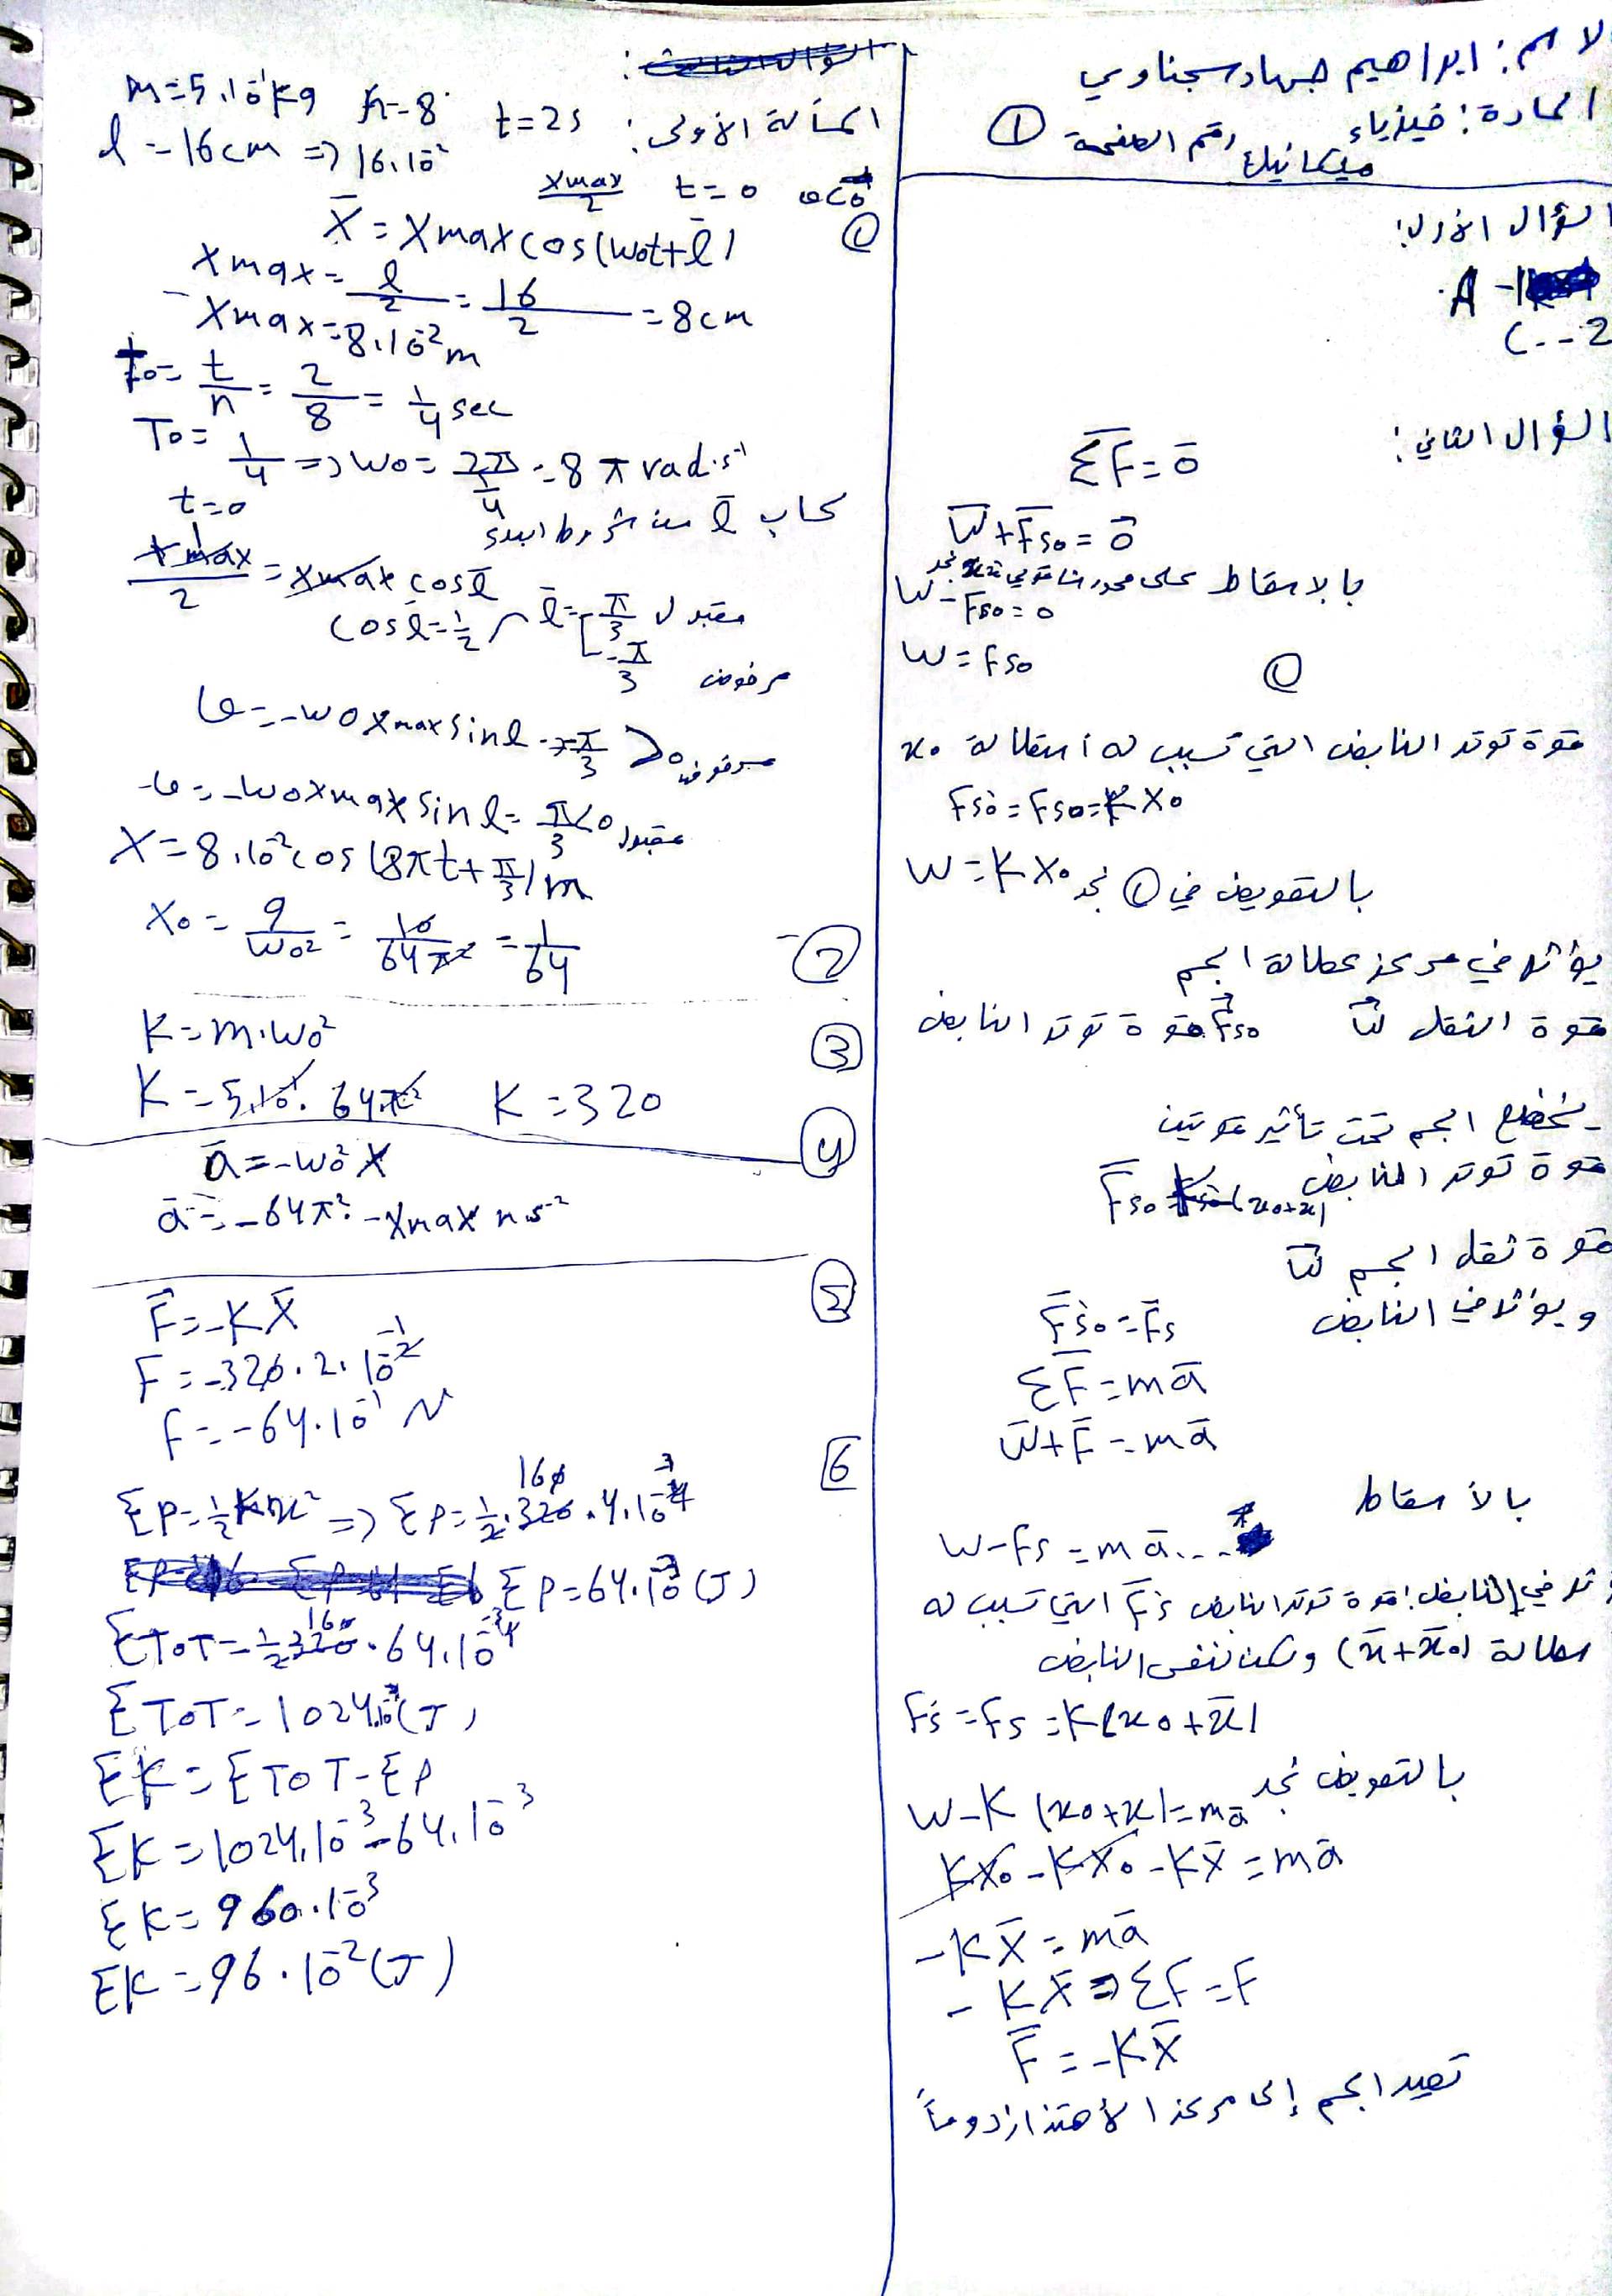 الاسم: ابراهيم جهاد سجناوي
المادة: فيزياء
ميكانيك رقم الصفحة ①
السؤال الأول:
A -1
2-- C
السؤال الثاني:
ΣF̅ = 0̅
W̅ + F̅s0 = 0̅
بالاسقاط على محور شاقولي نجد
W - Fs0 = 0
W = Fs0 ①
قوة توتر النابض التي تسبب له استطالة x0
Fs̀0 = Fs0 = K X0
بالتعويض في ① نجد W = K X0
يؤثر في مركز عطالة الجسم
قوة الثقل W⃗ F⃗s0 قوة توتر النابض
يخضع الجسم تحت تأثير قوتين
قوة توتر النابض F̅s0 (x0+x)
قوة ثقل الجسم W⃗
ويؤثر في النابض F̅s̀0 = F̅s
ΣF̅ = ma̅
W̅ + F̅ = ma̅
بالأسقاط
W - Fs = ma̅ ...
في النابض: قوة توتر النابض F̅s̀ التي تسبب له
استطالة (x̅+x̅0) ولكن لنفس النابض
Fs̀ = Fs = K(x0 + x̅)
بالتعويض نجد
W - K (x0 + x) = ma̅
KX0 - KX0 - KX̅ = ma̅
-KX̅ = ma̅
- KX̅ = ΣF = F
F̅ = -KX̅
تعيد الجسم إلى مركز الأهتزاز دوماً
المسألة الأولى: t=2s n=8 m=5.10⁻¹kg
l = 16cm => 16.10⁻²
Xmax/2 t=0 v<0
① X̅ = Xmax cos(ω0t + φ̅)
Xmax = l/2 = 16/2 = 8cm
Xmax = 8.10⁻² m
T0 = t/n = 2/8 = 1/4 sec
T0 = 1/4 => ω0 = 2π/(1/4) = 8π rad.s⁻¹
حساب φ̅ من شروط البدء
t=0
Xmax/2 = Xmax cosφ̅
cosφ̅ = 1/2 φ̅ = π/3 مقبول
-π/3 مرفوض
v = -ω0 Xmax sinφ = -π/3 > 0 مرفوض
v = -ω0 Xmax sinφ = π/3 < 0 مقبول
X = 8.10⁻² cos(8πt + π/3) m
② X0 = g/ω0² = 10/64π² = 1/64
③ K = m.ω0²
K = 5.10⁻¹.64.π² K = 320
④ a̅ = -ω0² X
a̅ = -64π². -Xmax m s⁻²
⑤ F̅ = -KX̅
F = -320.2.10⁻²
F = -64.10⁻¹ N
6 Ep = 1/2 Kx² => Ep = 1/2.320.4.10⁻⁴
Ep = 64.10⁻³ (J)
ETOT = 1/2 320.64.10⁻⁴
ETOT = 1024.10⁻³ (J)
EK = ETOT - Ep
EK = 1024.10⁻³ - 64.10⁻³
EK = 960.10⁻³
EK = 96.10⁻² (J)